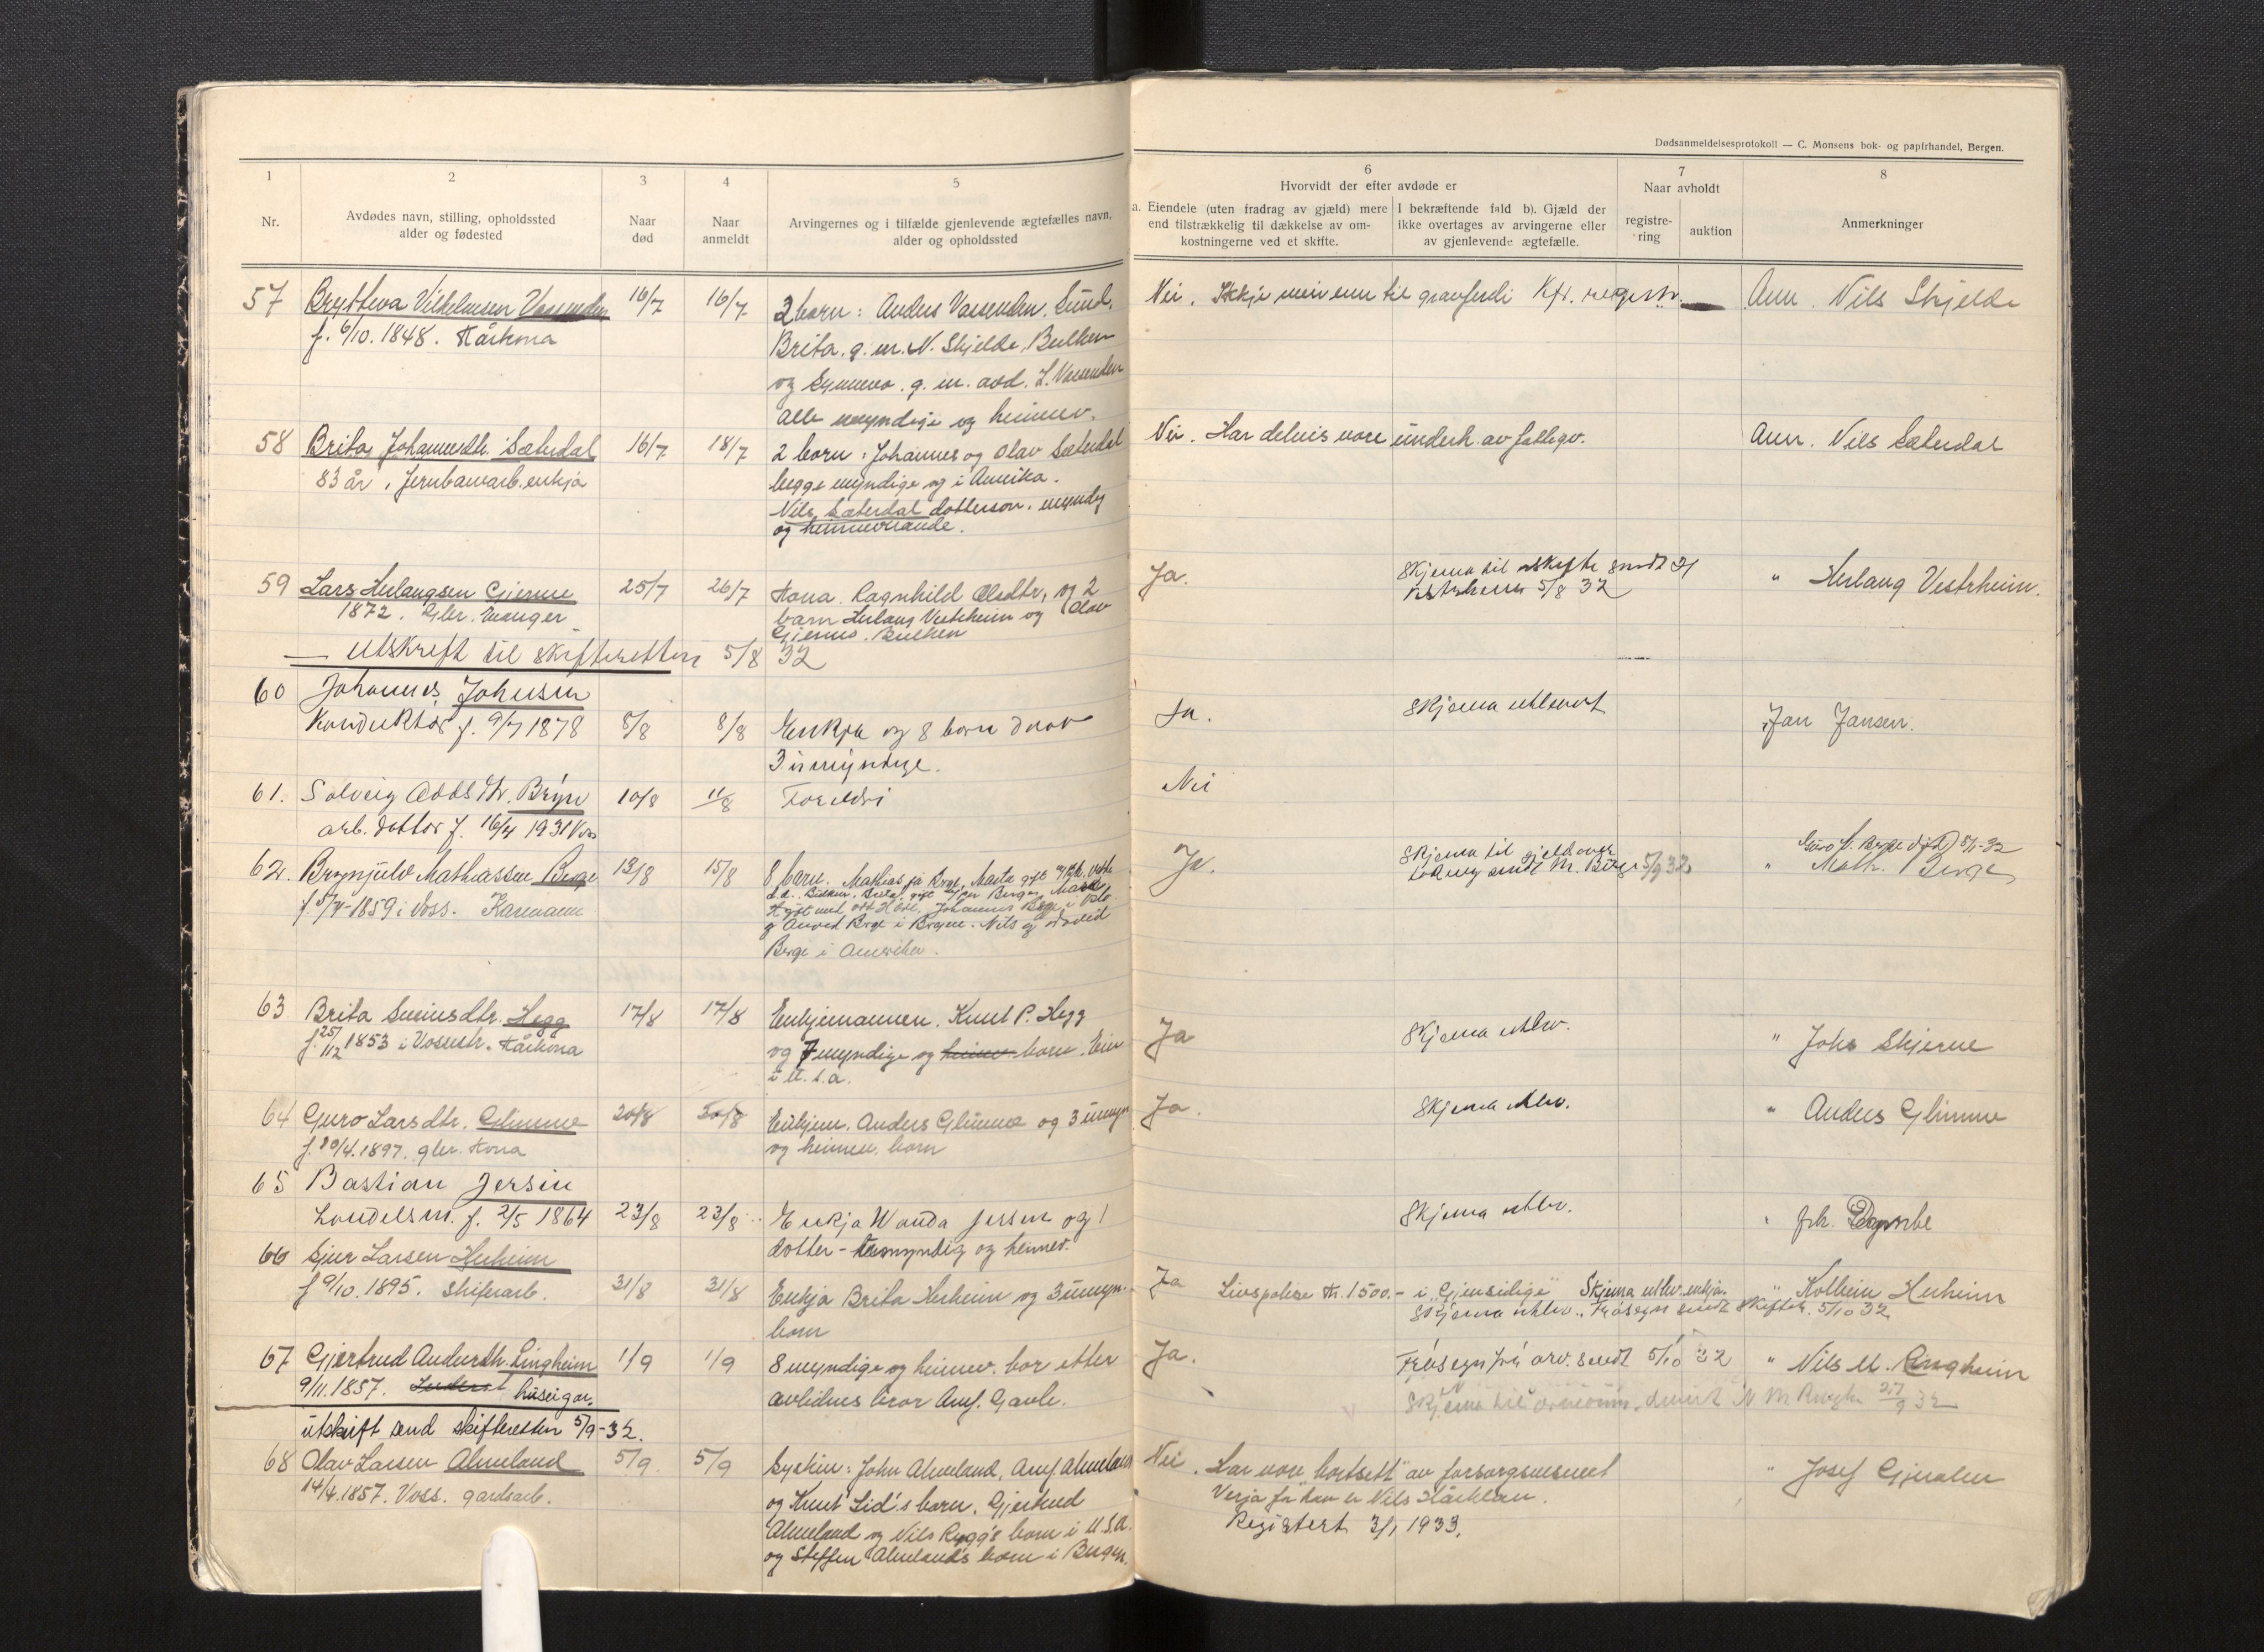 Dødsanmeldelsesprotokoll — C. Monsens bok- og papirhandel, Bergen.
1 2 3 4 5
Nr.
Avdødes navn, stilling, opholdssted
alder og fødested
Naar
død
Naar
anmeldt
Arvingernes og i tilfælde gjenlevende ægtefælles navn,
alder og opholdssted
6
Hvorvidt der efter avdøde er
a. Eiendele (uten fradrag av gjæld) mere
end tilstrækkelig til dækkelse av om-
kostningerne ved et skifte.
I bekræftende fald b). Gjæld der
ikke overtages av arvingerne eller
av gjenlevende ægtefælle.
7
Naar avholdt
registre-
ring
auktion
8
Anmerkninger
57 Brytteva Vilhelmsen Vassenden 16/7 16/7 3 born: Anders Vassenden, Sund.
f. 6/10. 1848. Kårkona
Brita, g. m. N. Skjelde, Bulken
og Synneva. g. m. avd. L. Vassenden
Alle umyndige og heimev.
Nei. Ikkje meir enn til gravferdi Kfr. registr. Anm. Nils Skjelde
58 Brita Johannesdtr. Sæterdal 16/7 18/7 2 born: Johannes og Olav Sæterdal
83 år, Jernbanearb. enkja
begge myndige og i Amerika.
Nils Sæterdal dotterson, myndig
og heimeverande.
Nei. Har delvis vore underh. av fattigv. Anm. Nils Sæterdal
59 Lars Herlaugsen Gjerme 25/7 26/7 Kona Ragnhild Olsdtr, og 2
1872. Gbr. Evanger
barn Herlaug Vestrheim og Olav
Gjerme. Bulken
Ja. Skjema til skifte sendt H
Vestrheim 5/8 32
" Herlaug Vestrheim.
— Utskrift til skifteretten 5/8 32
60 Johannes Johnsen
Konduktør f. 9/7 1878 8/8 8/8 Enkja og 8 born derav
3 umyndige.
Ja. Skjema utlevert Jan Jansen.
61. Solveig Oddsdtr. Bryn 10/8 11/8 Foreldri
arb. dotter f. 16/4 1931 Voss
Nei
62. Brynjulv Mathiassen Berge 13/8 15/8 8 barn. Mathias på Berge, Marta gift
f. 5/4-1859 i Voss. Kaarmann
og Anved Berge i Bergen. Nils og Daveid
Berge i Amerika.
Ja. Skjema til
sendt M. Berge 5/9 32
" Math. Berge
63 Brita Sveinsdtr. Hegg 17/8 17/8 Enkjemannen. Knut P. Hegg
f. 25/12 1853 i Vossestr. Kårkona
og 7 myndige og heimev. born. Ein
i U.S.A.
Ja Skjema utlev. " Johs Skjerve
64 Guro Larsdtr. Glimme 20/8 20/8 Enkjem. Anders Glimme og 3 umyn
f. 20/4. 1897. gbr. kona
og heimev. born
Ja. Skjema utlev. " Anders Glimme
65 Bastian Jersin
Landelsm. f. 2/5 1864 23/8 23/8 Enkja Wanda Jersin og 1
dotter - umyndig og heimev.
Skjema utlev. frk. Dagsrbe
66 Sjur Larsen Herheim
f 9/10. 1895. Skiferarb. 31/8 31/8 Enkja Brita Herheim og 3 umyn.
born
Ja Livspolise kr. 1500.- i "Gjensidige" Skjema utlev. enkja. " Kolbein Herheim
Skjema utlev. Frásegn sendt Skifter. 5/10 32
67 Gjertrud Andersdtr. Lingheim 1/9 1/9 8 myndige og heimev. bor etter
9/11. 1857. huseigar.
avlidnes bror Amf. Gavle.
Ja. Frásegn frå arv. sendt 5/10 32 " Nils M. Ringheim
utskrift send skifteretten 5/9-32.
68 Olav Larsen Almeland 5/9 5/9 Syskin: John Almeland, Amf Almeland
14/4. 1857. Voss. gardsarb.
og Knut Lid's born. Gjertrud
Almeland og Nils Rygg's born i U.S.A.
og Steffen Almeland's born i Bergen.
Nei. Har vore "bortsett" av forsorgsvesenet
Verja for han er Nils Kårklau.
Registert 3/1 1933.
" Josef Gjeralen